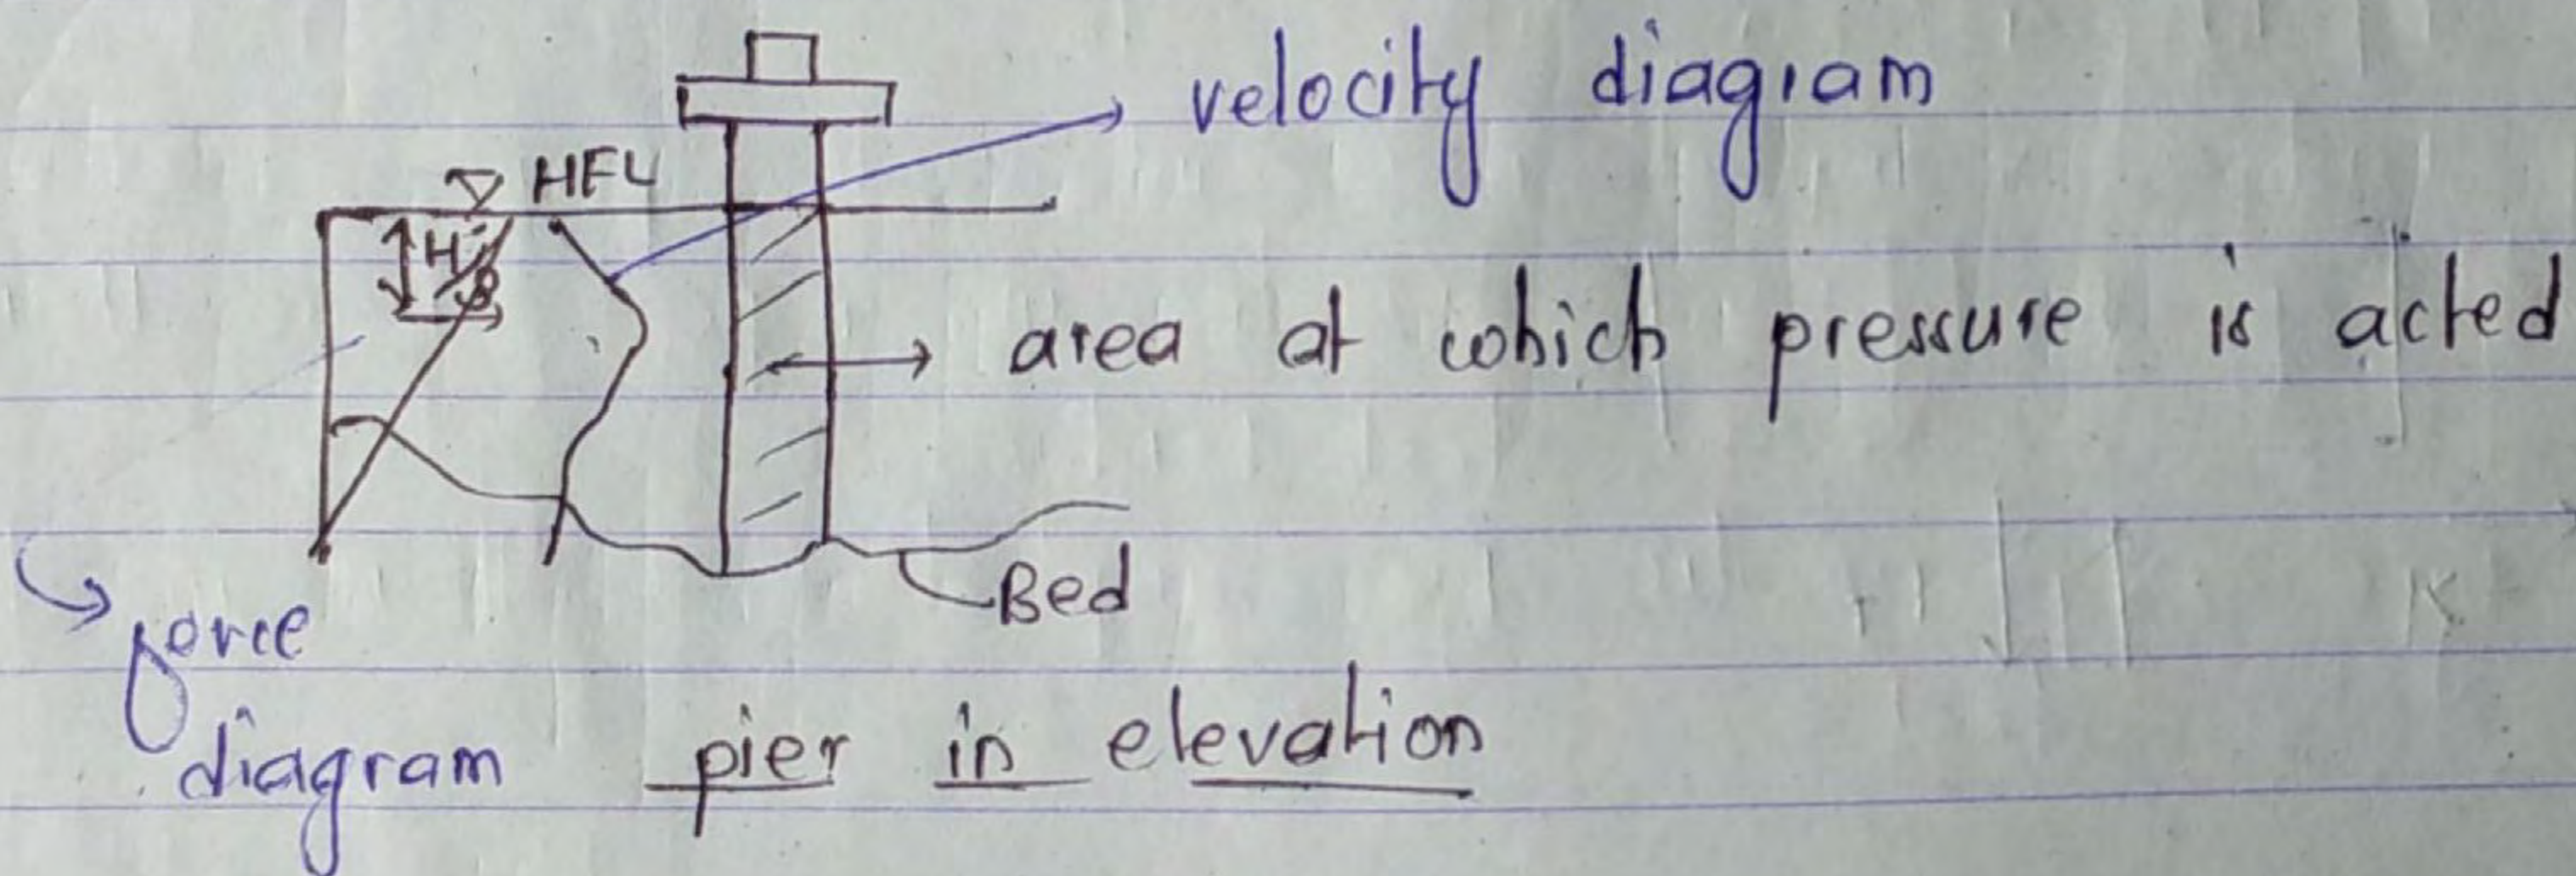 velocity diagram
HFL
H
area at which pressure is acted
Bed
force
diagram
pier in elevation